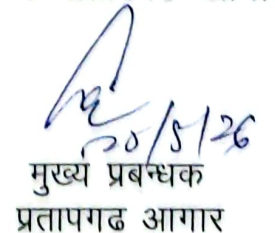 20/5/26
मुख्य प्रबन्धक
प्रतापगढ आगार